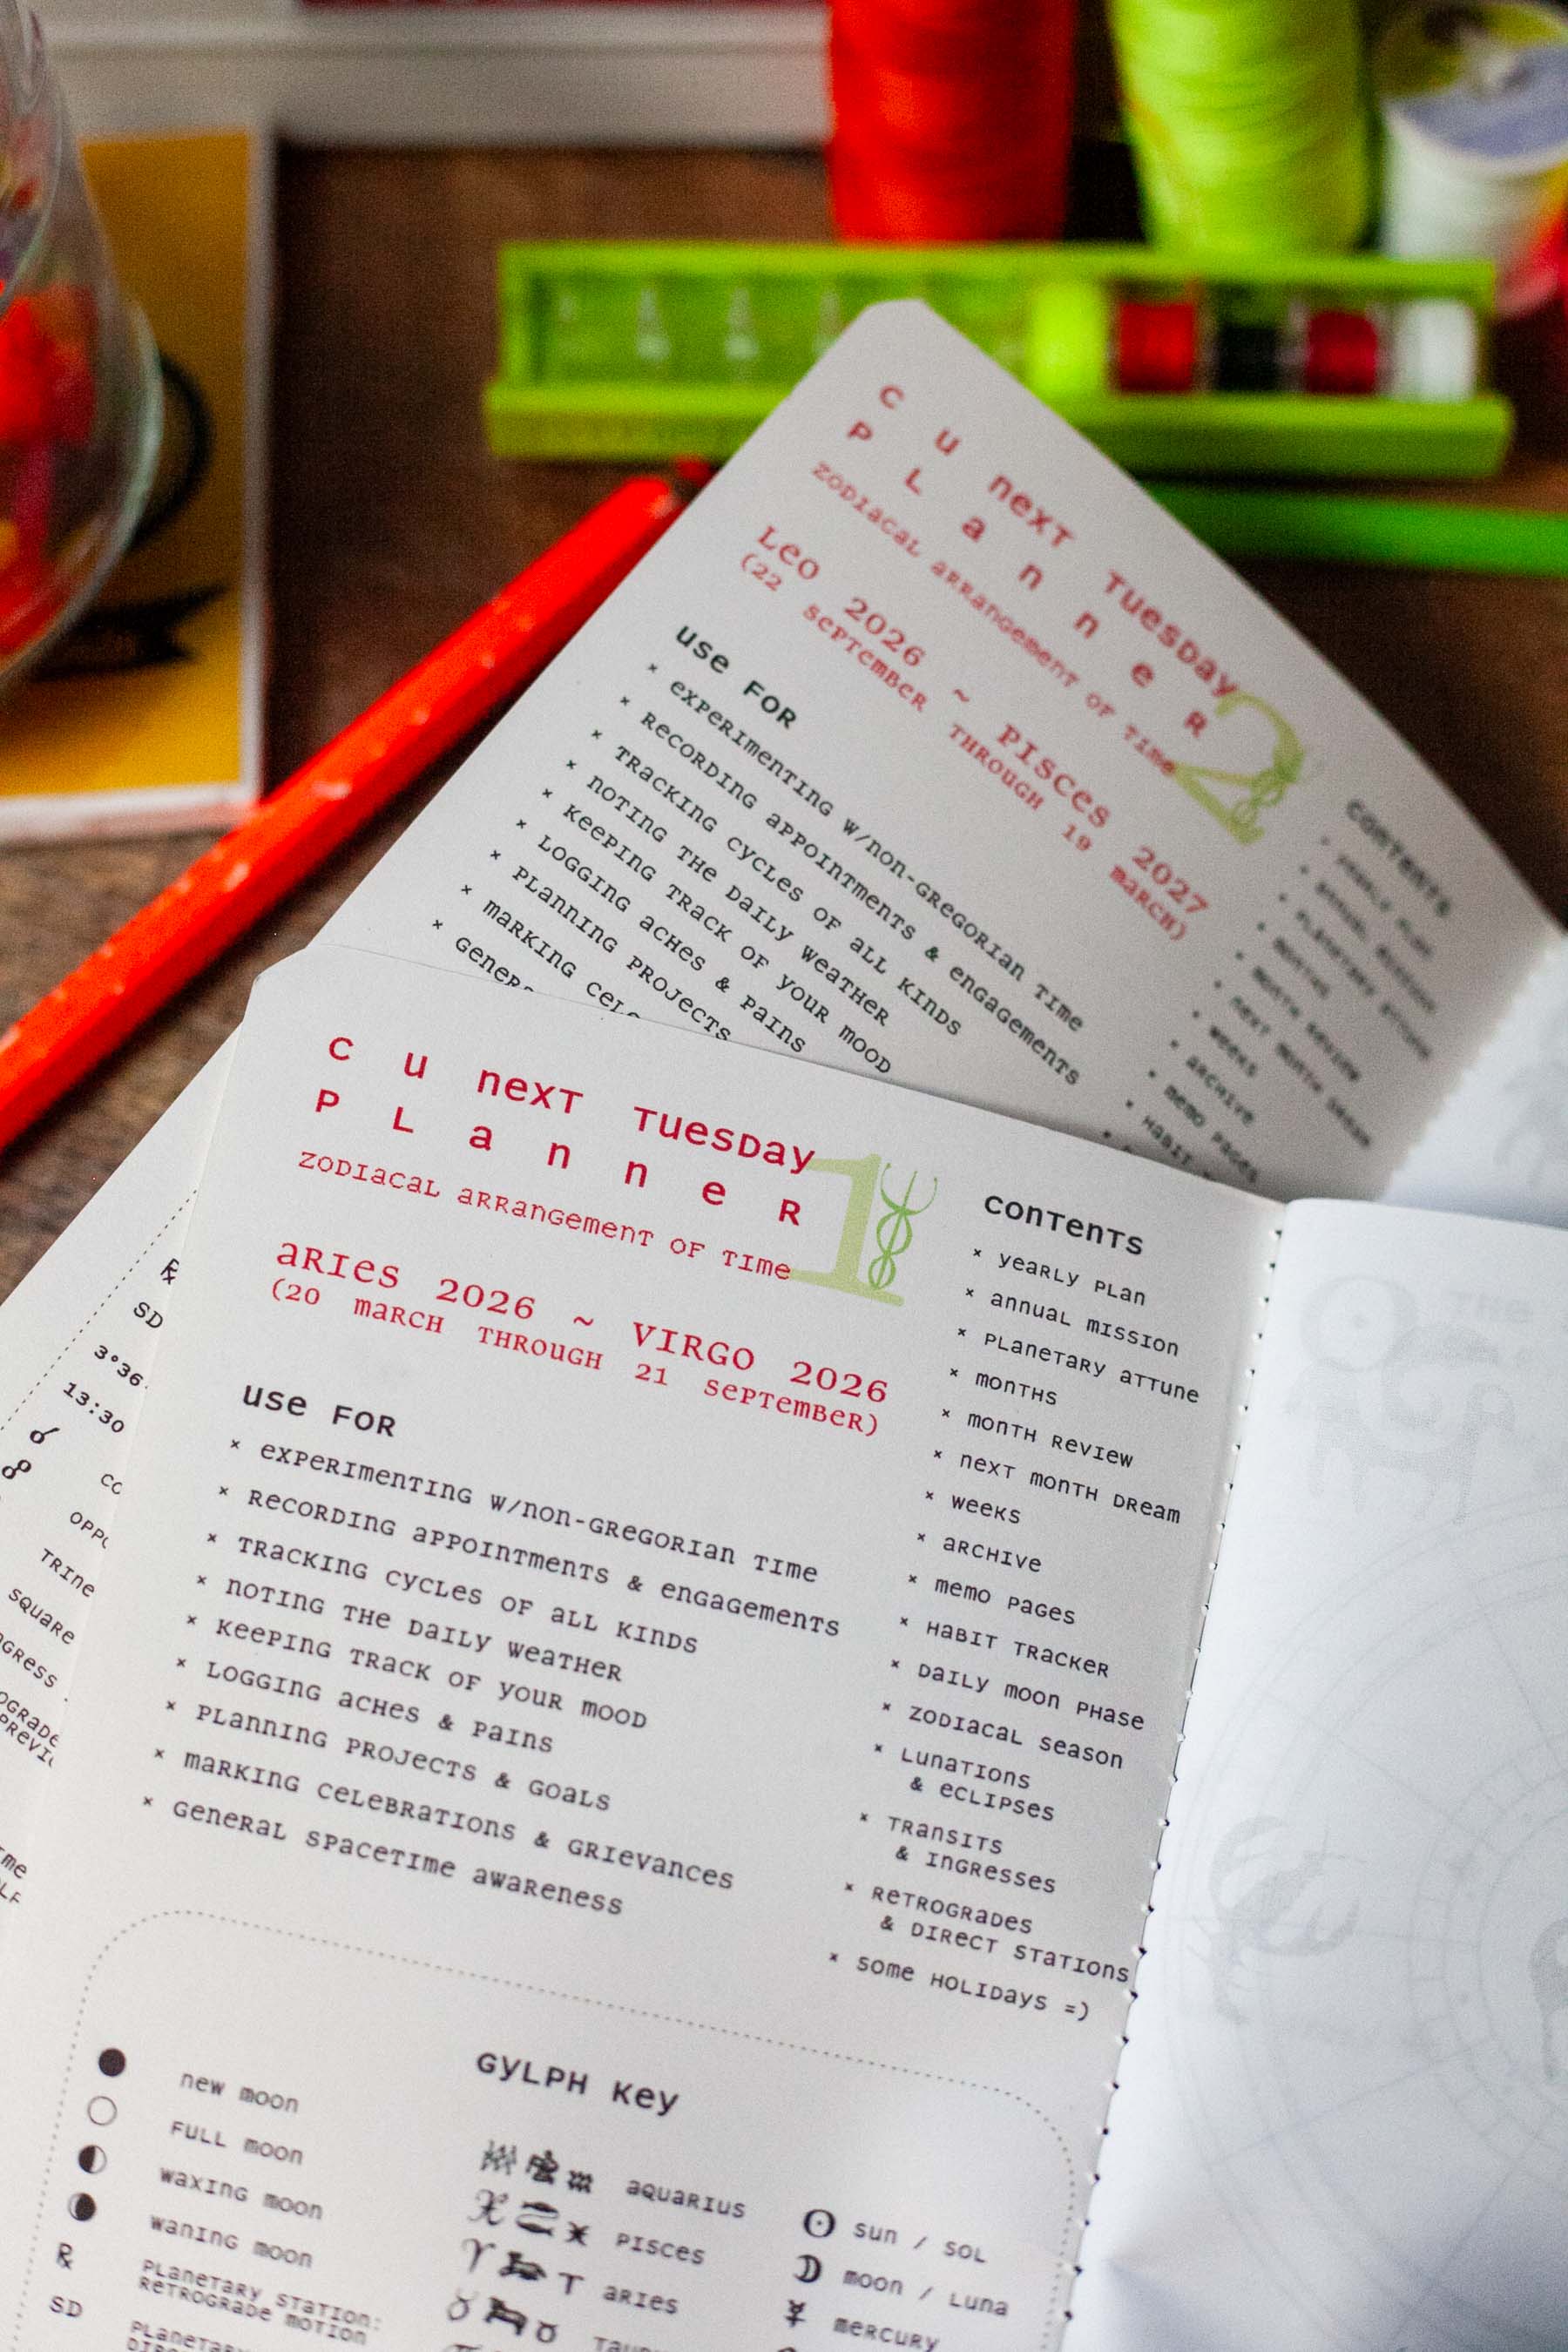 c u nexT Tuesday
P L a n n e R
zodiacal arrangement of time
2
Leo 2026 ~ Pisces 2027
(22 September through 19 march)
use for
× experimenting w/non-gregorian time
× recording appointments & engagements
× tracking cycles of all kinds
× noting the daily weather
× keeping track of your mood
× logging aches & pains
× planning projects
× marking cel
× gener
contents
× yearly plan
× annual mission
× planetary attune
× months
× month review
× next month dream
× weeks
× archive
× memo pages
× habit
c u nexT Tuesday
P L a n n e R
zodiacal arrangement of time
1
aries 2026 ~ Virgo 2026
(20 march through 21 September)
use for
× experimenting w/non-gregorian time
× recording appointments & engagements
× tracking cycles of all kinds
× noting the daily weather
× keeping track of your mood
× logging aches & pains
× planning projects & goals
× marking celebrations & grievances
× general spacetime awareness
contents
× yearly plan
× annual mission
× planetary attune
× months
× month review
× next month dream
× weeks
× archive
× memo pages
× habit tracker
× daily moon phase
× zodiacal season
× lunations
& eclipses
× transits
& ingresses
× retrogrades
& direct stations
× some holidays =)
gylph key
● new moon
○ full moon
◐ waxing moon
◑ waning moon
℞ planetary station:
retrograde motion
SD planetary
aquarius
pisces
♈ aries
♉ Tau
☉ sun / sol
☽ moon / luna
☿ mercury
℞
SD
3°36
13:30
☌ co
☍ oppo
trine
square